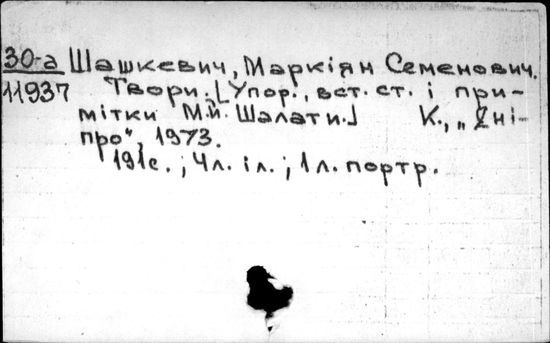 30-а Шашкевич, Маркіян Семенович.
11937 Твори. [Упор., вст. ст. і при-
мітки М.Й. Шалати.] К., „Дні-
про", 1973.
191с.; 4л. іл.; 1л. портр.